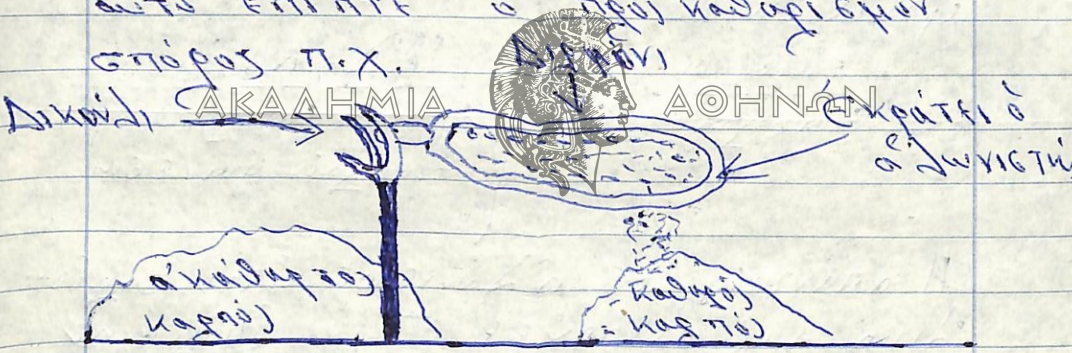 αὐτὸ ἔπιπτε ὁ πρὸς καθαρισμὸν
σπόρος π.χ.
Δικούλι
ΑΚΑΔΗΜΙΑ ΑΘΗΝΩΝ
ἐκράτει ὁ
ἁλωνιστὴ
ἀκάθαρτος
καρπός
καθαρός
καρπός